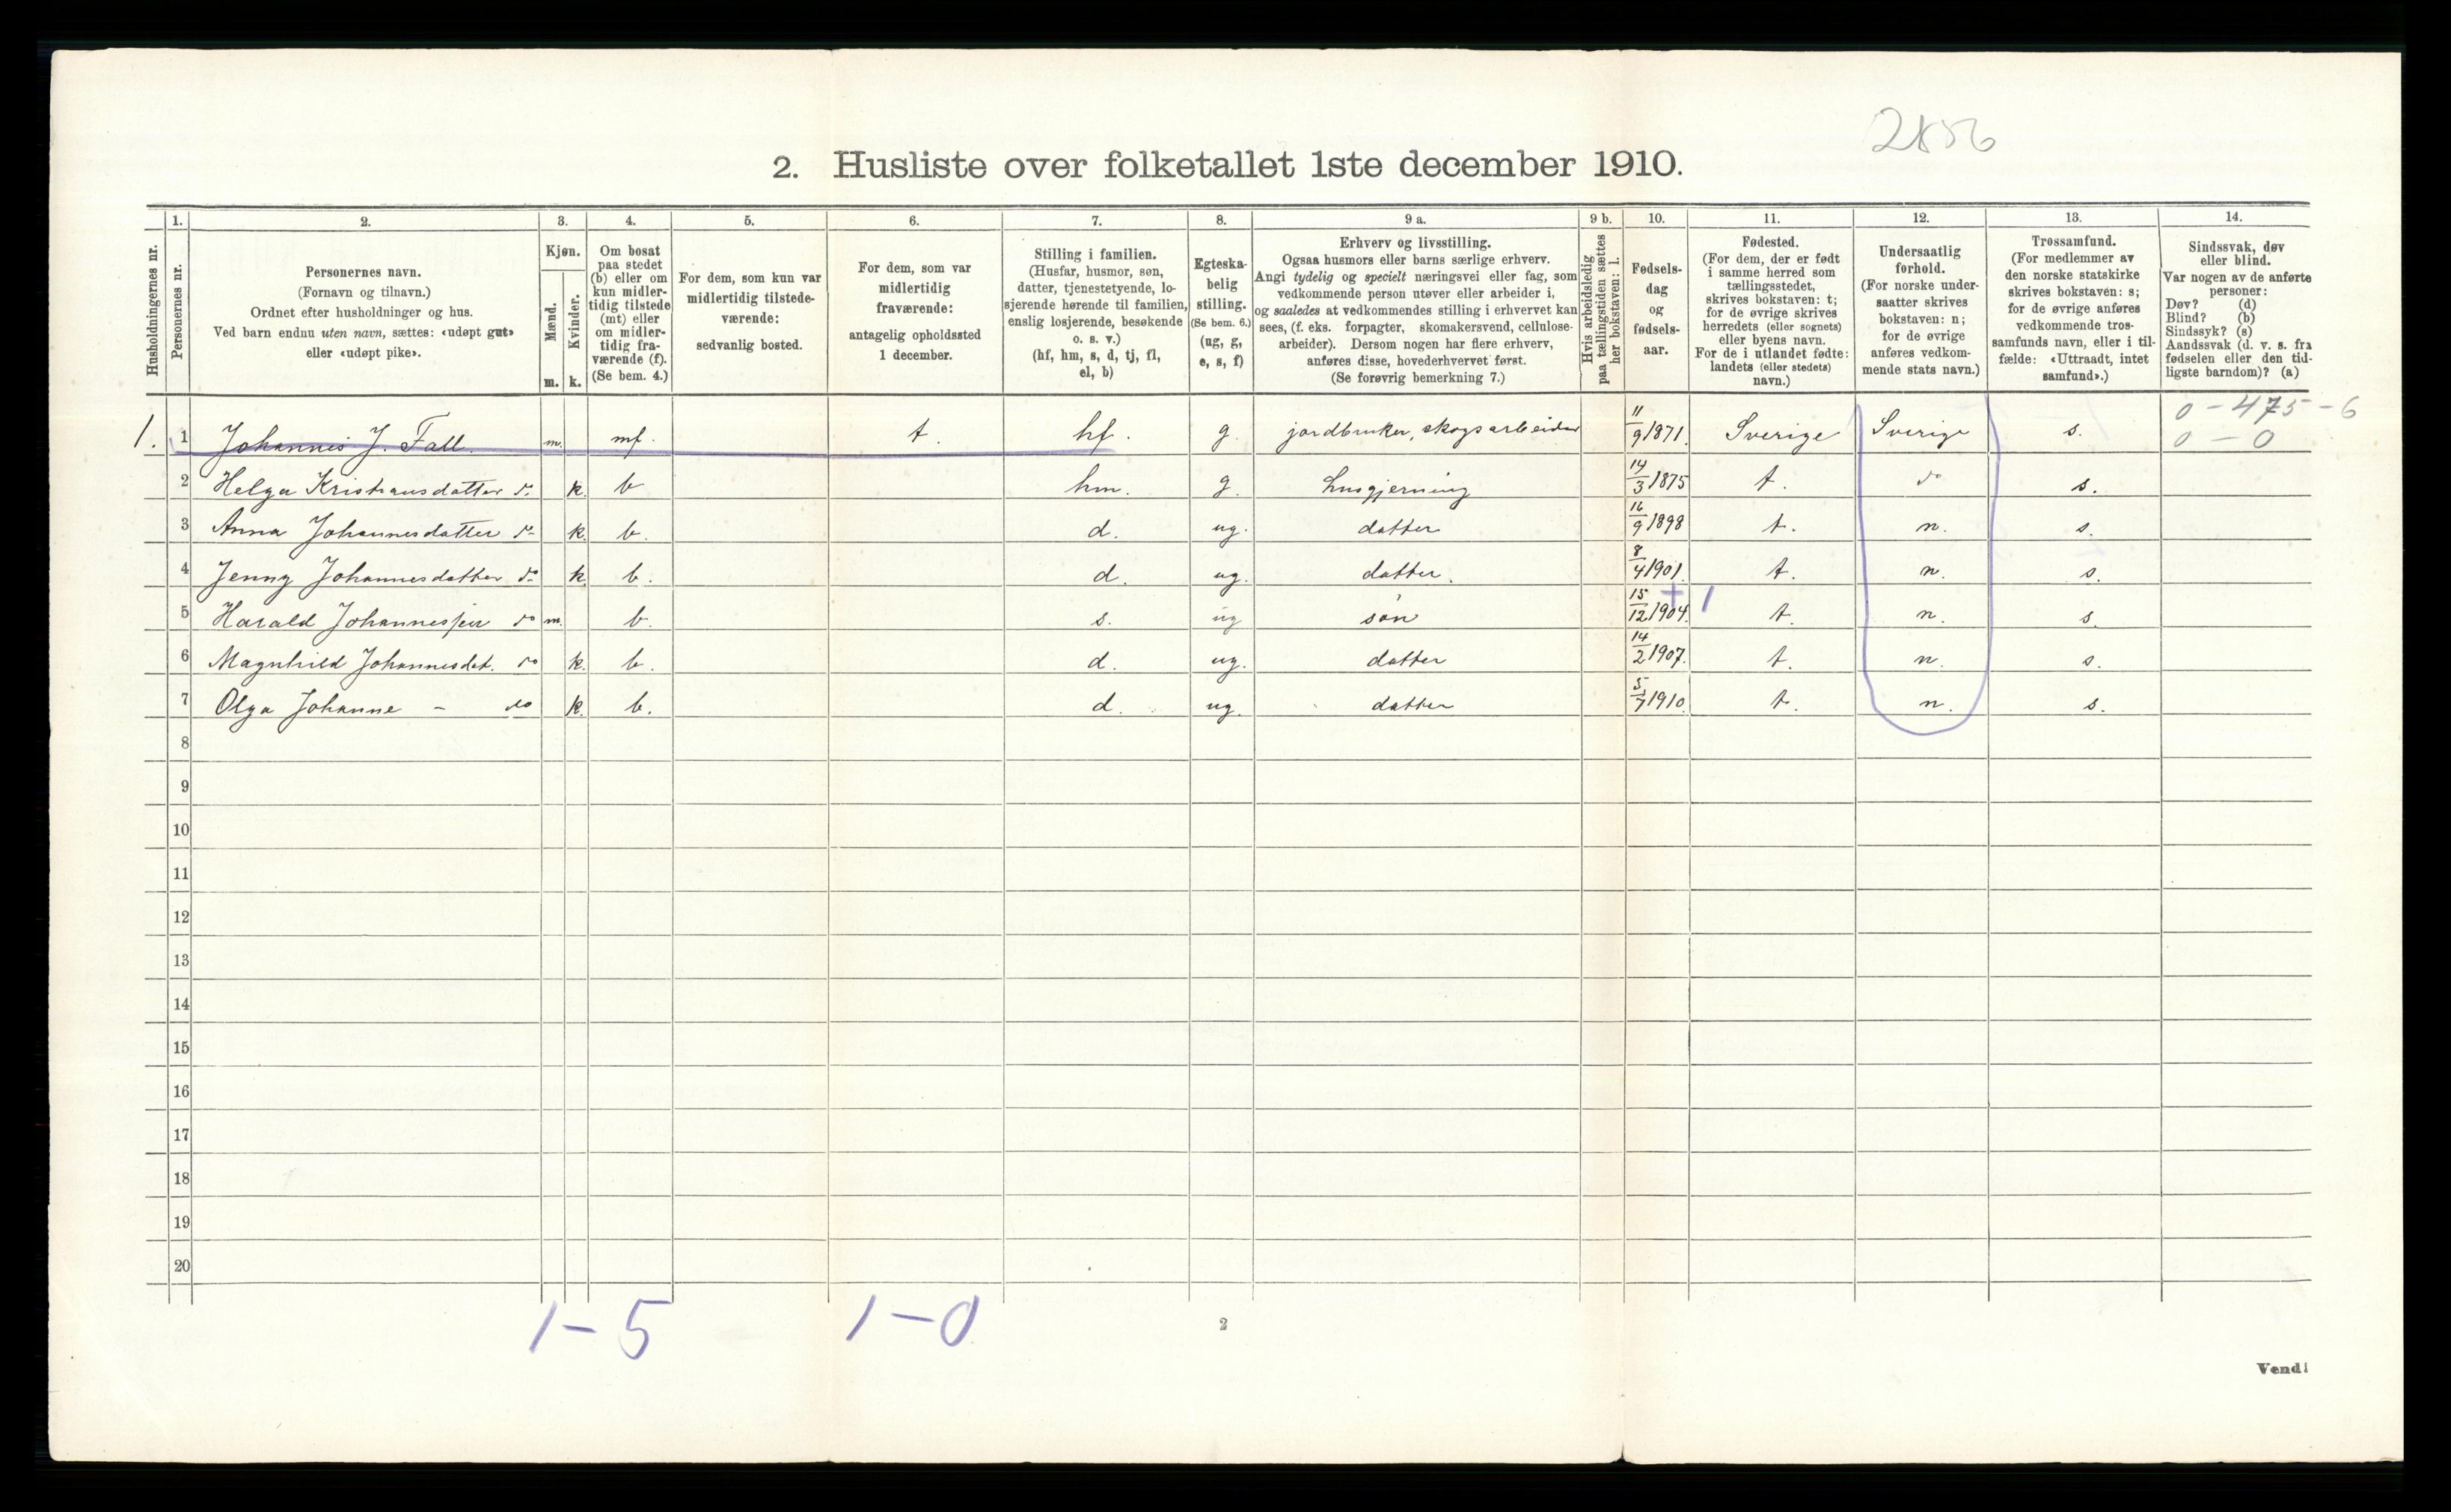 2856
2. Husliste over folketallet 1ste december 1910.
1. 2. 3. 4. 5. 6. 7. 8. 9 a. 9 b. 10. 11. 12. 13. 14.
Husholdningernes nr.
Personernes nr.
Personernes navn.
(Fornavn og tilnavn.)
Ordnet efter husholdninger og hus.
Ved barn endnu uten navn, sættes: «udøpt gut»
eller «udøpt pike».
Kjøn.
Mænd.
Kvinder.
m. k.
Om bosat
paa stedet
(b) eller om
kun midler-
tidig tilstede
(mt) eller
om midler-
tidig fra-
værende (f).
(Se bem. 4.)
For dem, som kun var
midlertidig tilstede-
værende:
sedvanlig bosted.
For dem, som var
midlertidig
fraværende:
antagelig opholdssted
1 december.
Stilling i familien.
(Husfar, husmor, søn,
datter, tjenestetyende, lo-
sjerende hørende til familien,
enslig losjerende, besøkende
o. s. v.)
(hf, hm, s, d, tj, fl,
el, b)
Egteska-
belig
stilling.
(Se bem. 6.)
(ug, g,
e, s, f)
Erhverv og livsstilling.
Ogsaa husmors eller barns særlige erhverv.
Angi tydelig og specielt næringsvei eller fag, som
vedkommende person utøver eller arbeider i,
og saaledes at vedkommendes stilling i erhvervet kan
sees, (f. eks. forpagter, skomakersvend, cellulose-
arbeider). Dersom nogen har flere erhverv,
anføres disse, hovederhvervet først.
(Se forøvrig bemerkning 7.)
Hvis arbeidsledig
paa tællingstiden sættes
her bokstaven: l.
Fødsels-
dag
og
fødsels-
aar.
Fødested.
(For dem, der er født
i samme herred som
tællingsstedet,
skrives bokstaven: t;
for de øvrige skrives
herredets (eller sognets)
eller byens navn.
For de i utlandet fødte:
landets (eller stedets)
navn.)
Undersaatlig
forhold.
(For norske under-
saatter skrives
bokstaven: n;
for de øvrige
anføres vedkom-
mende stats navn.)
Trossamfund.
(For medlemmer av
den norske statskirke
skrives bokstaven: s;
for de øvrige anføres
vedkommende tros-
samfunds navn, eller i til-
fælde: «Uttraadt, intet
samfund».)
Sindssvak, døv
eller blind.
Var nogen av de anførte
personer:
Døv? (d)
Blind? (b)
Sindssyk? (s)
Aandssvak (d. v. s. fra
fødselen eller den tid-
ligste barndom)? (a)
0 - 475 - 6
1. 1 Johannes J. Fall m. mf. t. hf. g. jordbruker, skogsarbeider 11/9 1871. Sverige Sverige s. 0 - 0
2 Helga Kristiansdatter do k. b hm. g. husgjerning 14/3 1875 t. do s.
3 Anna Johannesdatter do k. b. d. ug. datter 16/9 1898 t. n. s.
4 Jenny Johannesdatter do k. b. d. ug. datter. 8/4 1901. t. n. s.
+ 1
5 Harald Johannessen do m. b. s. ug søn 15/12 1904. t. n. s.
6 Magnhild Johannesdat. do k. b. d. ug. datter 14/2 1907. t. n. s.
7 Olga Johanne - do k. b. d. ug. datter 5/7 1910. t. n. s.
8
9
10
11
12
13
14
15
16
17
18
19
20
1 - 5 1 - 0
2
Vend!